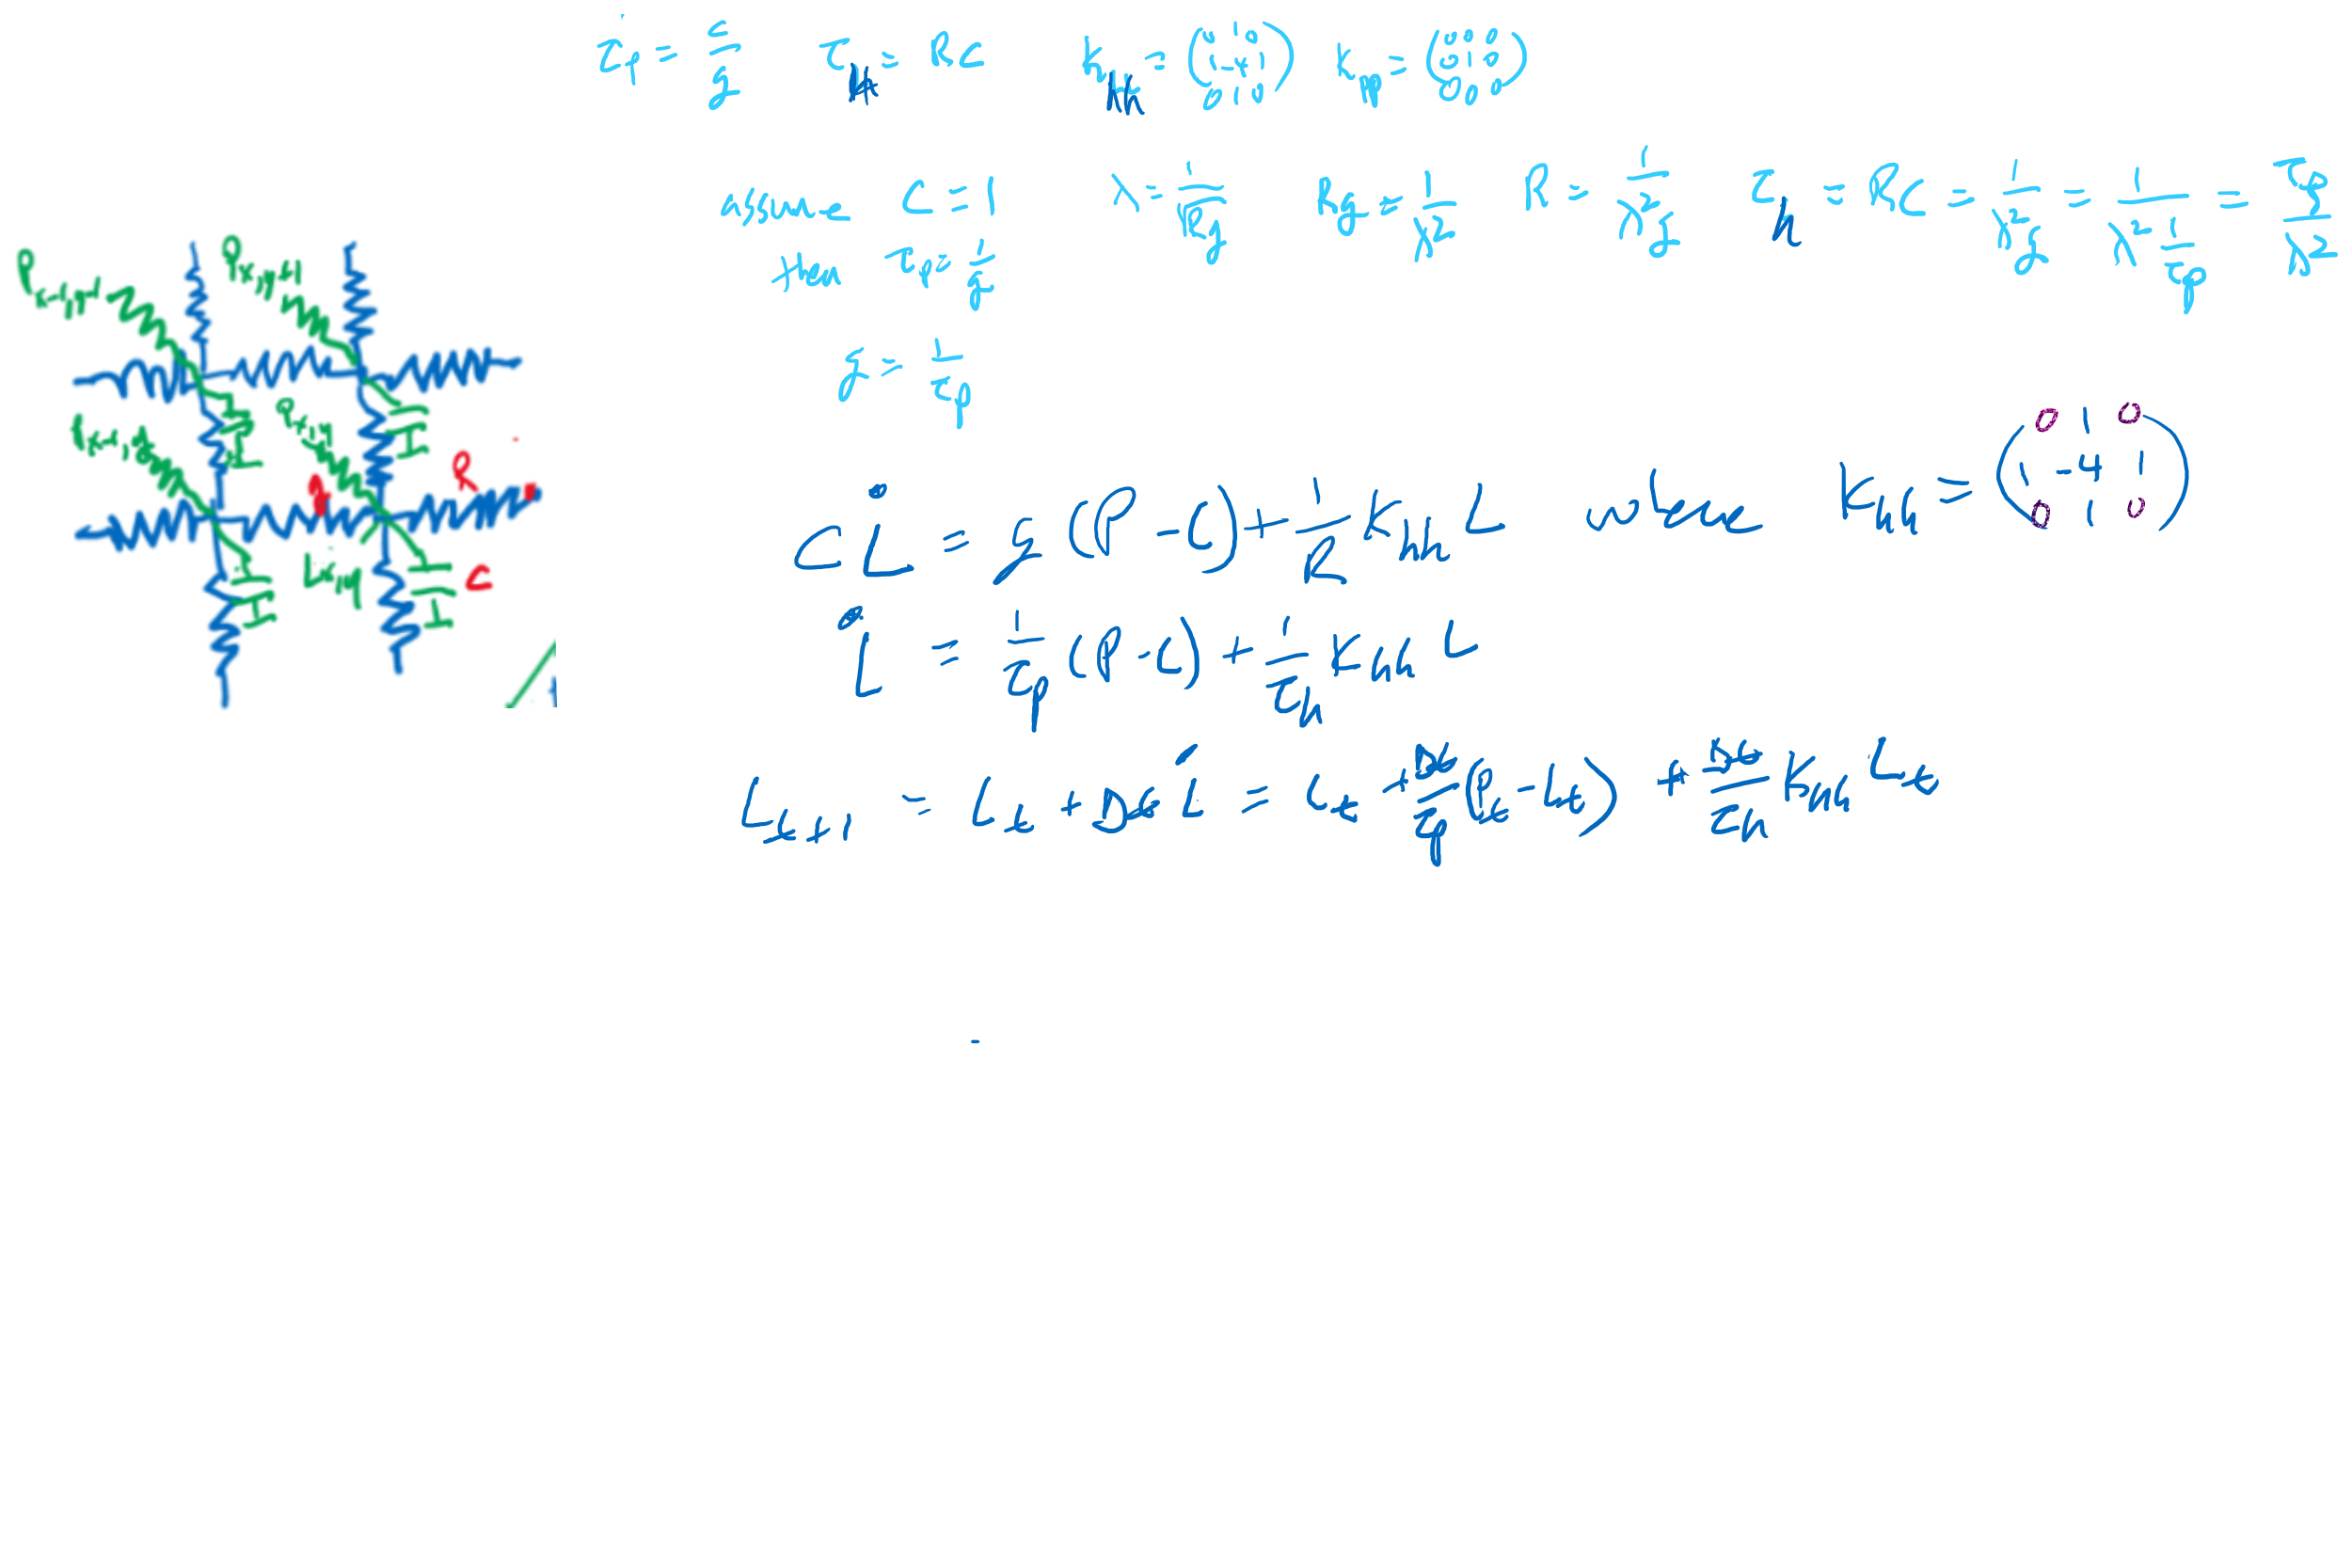 τp = c/g   τh = RC   Kh = (0 1 0; 1 -4 1; 0 1 0)   Kp = (0 0 0; 0 1 0; 0 0 0)
assume C = 1   λ = 1/√Rg   Rg = 1/λ²   R = 1/λ²g   τh = RC = 1/λ²g = 1/λ² 1/τp = τp/λ²
then τp = 1/g
g = 1/τp
Px-1,y-1
Px,y-1
Px-1,y
Px,y
R
Lx,y
C
C L̇ = g (P - L) + 1/R Khh L where Khh = (0 1 0; 1 -4 1; 0 1 0)
L̇ = 1/τp (P - L) + 1/τh Khh L
Lt+1 = Lt + Δt L̇ = Lt + Δt/τp (Pt - Lt) + Δt/τh Khh Lt